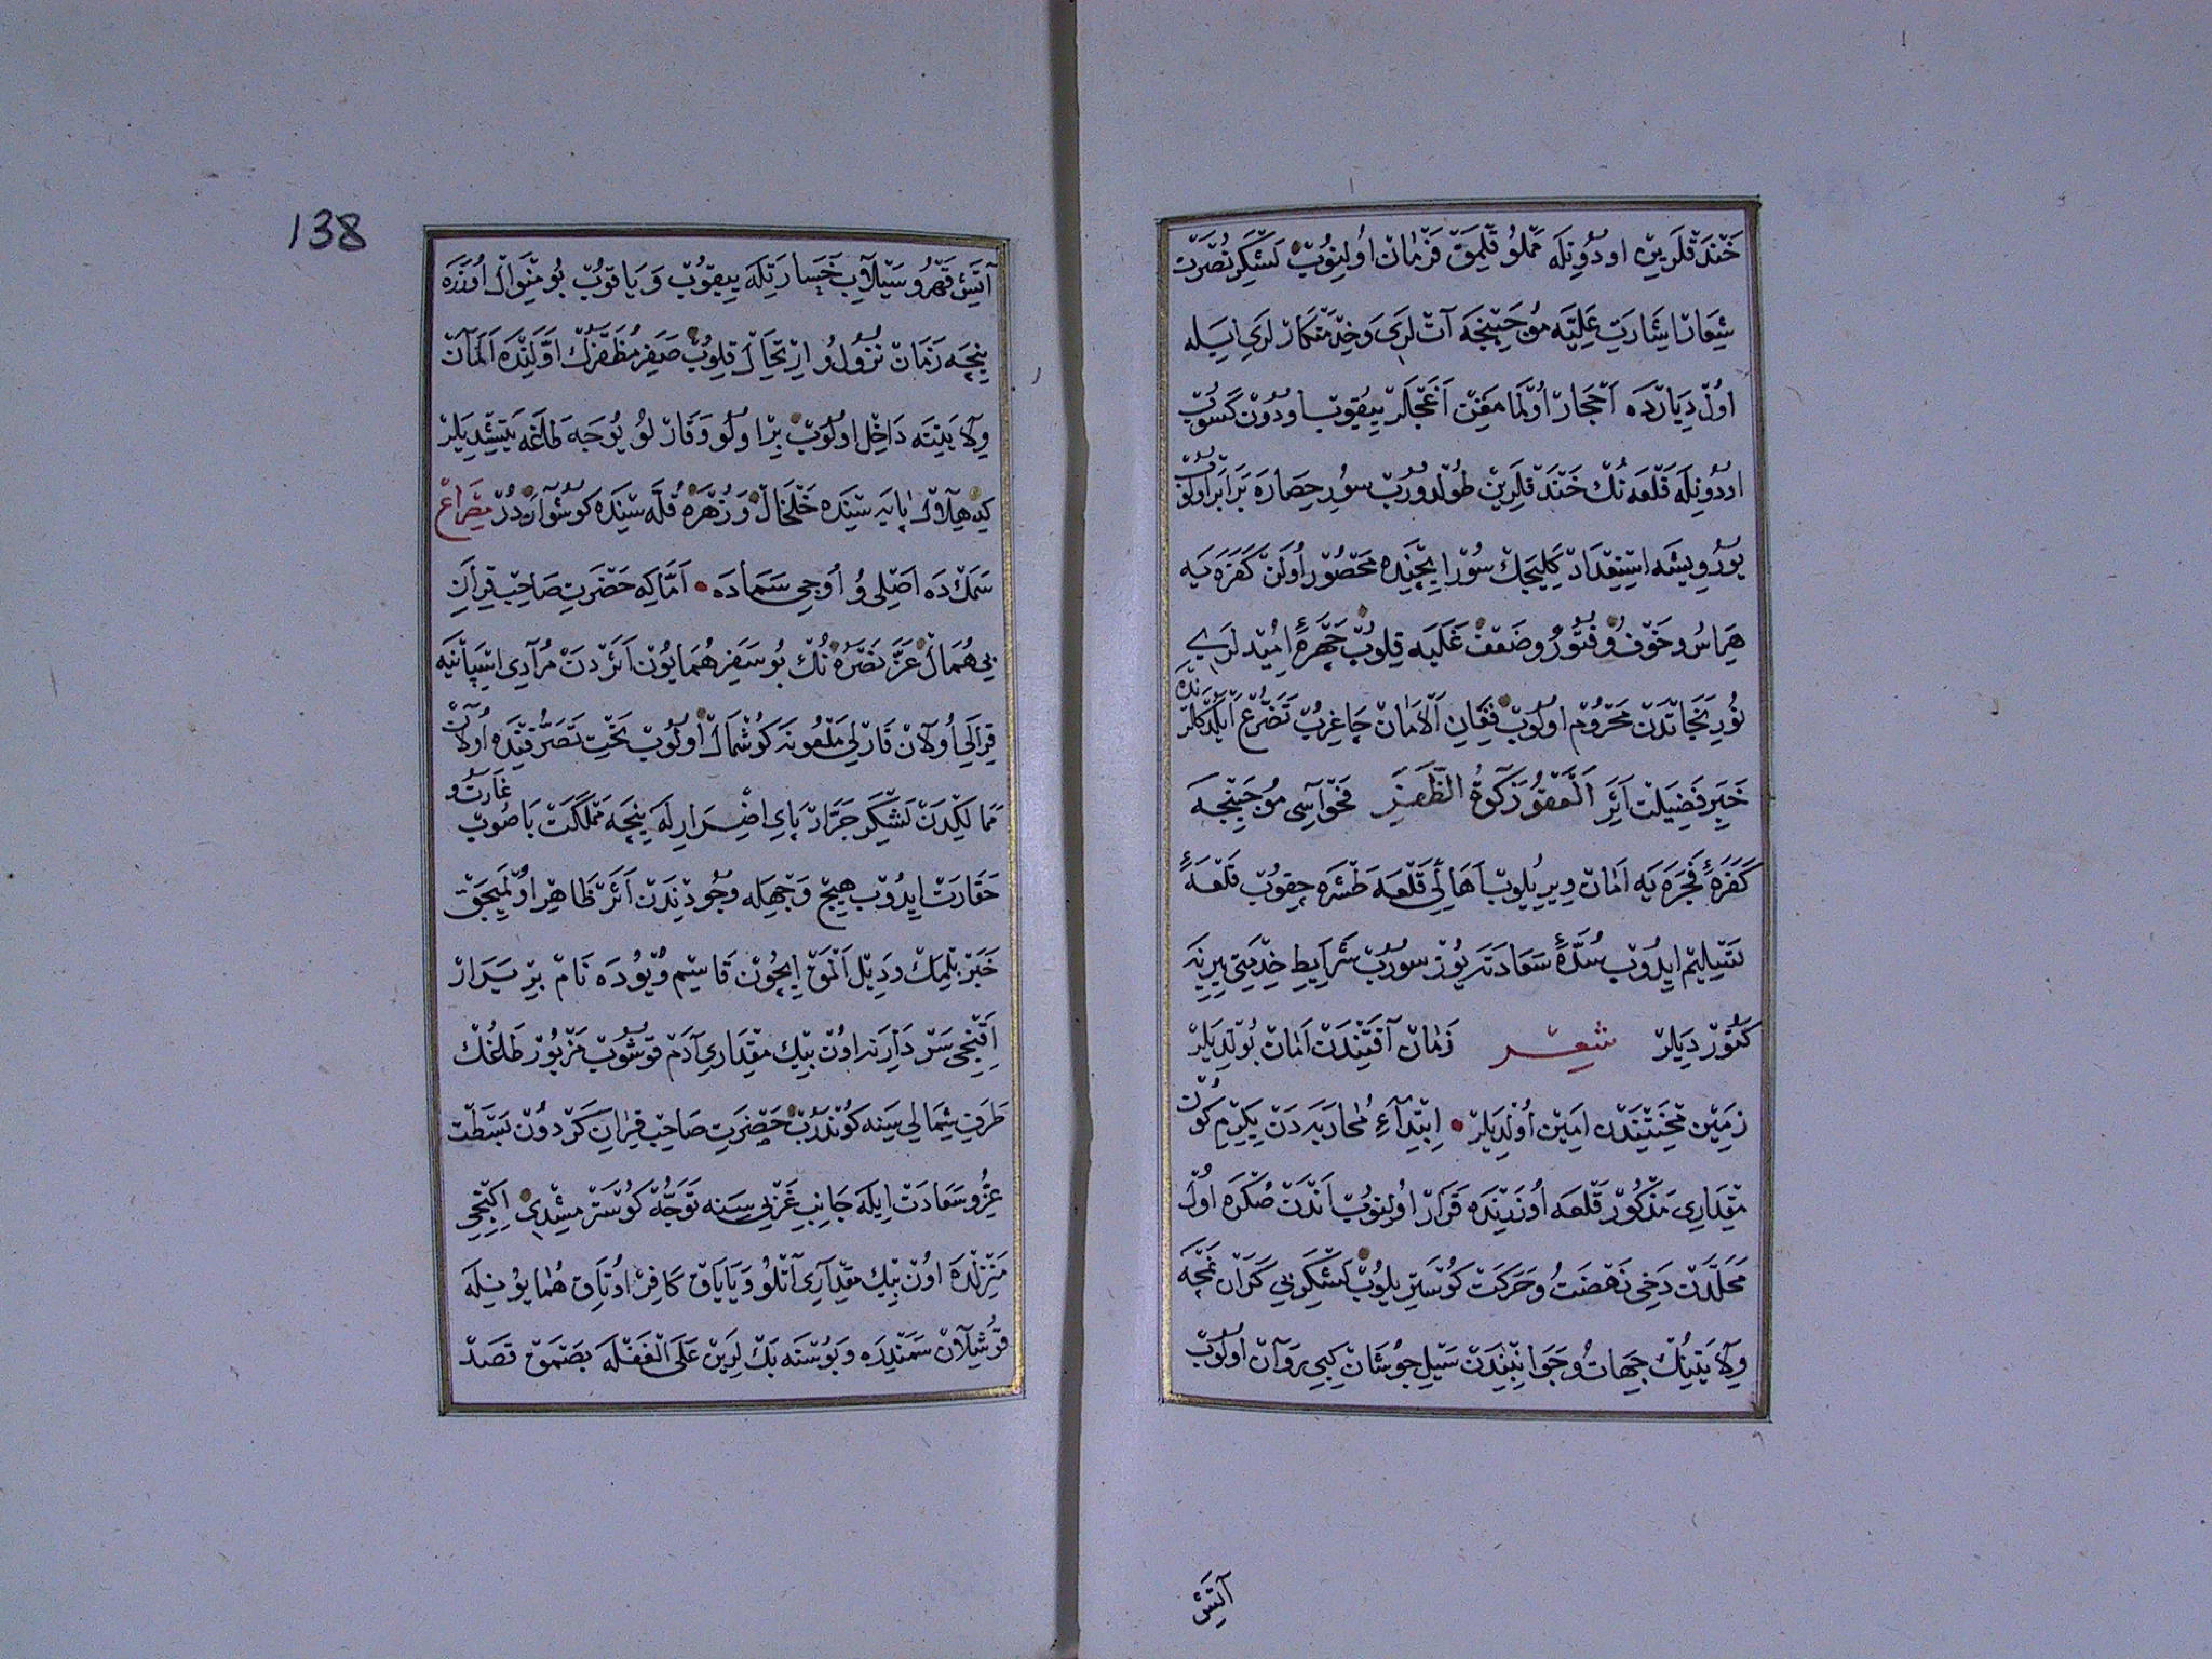 خندقلرين اودونله مملو قلمق فرمان اولنوب لشكر نصرت
شعار اشارت عليه موجبنجه آت لرى وخدمتكار لرى ايله
اول ديارده احجار اولمامغن اغجلر ييقوب اودون كسوب
اودونله قلعه نك خندقلرين طولدوروب سور حصاره برابر اولوب
يورويشه استعداد كليجك سور ايچنده محصور اولن كفره يه
هراس وخوف و فتور وضعف غلبه قلوب چهرهٔ اميد لرى
نور نجاتدن محروم اولوب فغان الامان چاغرب تضرع ايلدكلرنده
خبر فضيلت اثر العفو زكوة الظفر فحواسى موجبنجه
كفرهٔ فجره يه امان ويريلوب اهالى قلعه طشره چقوب قلعهٔ
تسليم ايدوب سدهٔ سعادته يوز سوروب شرايط خدمتى يرينه
كتورديلر شعر زمان آفتندن امان بولديلر
زمين محنتندن امين اولديلر ابتداء محاربه دن يكرمى كون
مقدارى مذكور قلعه اوزرنده قرار اولنوب اندن صكره اول
محلدن دخى نهضت و حركت كوستريلوب لشكر بي كران نمچه
ولايتينك جهات و جوانبندن سيل جوشان كبى روان اولوب
آتش
138
آتش قهر و سيلاب خسارتله ييقوب و ياقوب بو منوال اوزره
نيجه زمان نزول و ارتحال قلوب صفر مظفرك اولنده المان
ولايتنه داخل اولوب بر اولو وقار لو يوجه طاغه يتشديلر
كه هلال پايه سنده خلخال وزهره قله سنده كوشواردر مصراع
سمك ده اصلى و اوجى سماده اما كه حضرت صاحب قران
بى همال عز نصره نك بو سفر همايون اثردن مرادى اسپانيه
قرالى اولان قارلى ملعونه كوشمال اولوب تحت تصرفنده اولان
ممالكدن لشكر جرار پاى اضرارله نيجه مملكت باصوب غارت و
حقارت ايدوب هيچ وجهله وجودندن اثر ظاهر اولميجق
خبر بلمك وديل المق ايچون قاسم ويوده نام بر سردار
اقنجى سردارنه اون بيك مقدارى آدم قوشوب مزبور طاغك
طرف شمالى سنه كوندروب حضرت صاحب قران كردون بسطت
عز و سعادت ايله جانب غربى سنه توجه كوسترمشدى ايكنجى
منزلده اون بيك مقدارى آتلو و ياياق كافر اوتاق همايونيله
قرشيلان سمندره و بوسنه بك لرين على الغفله بصمق قصد